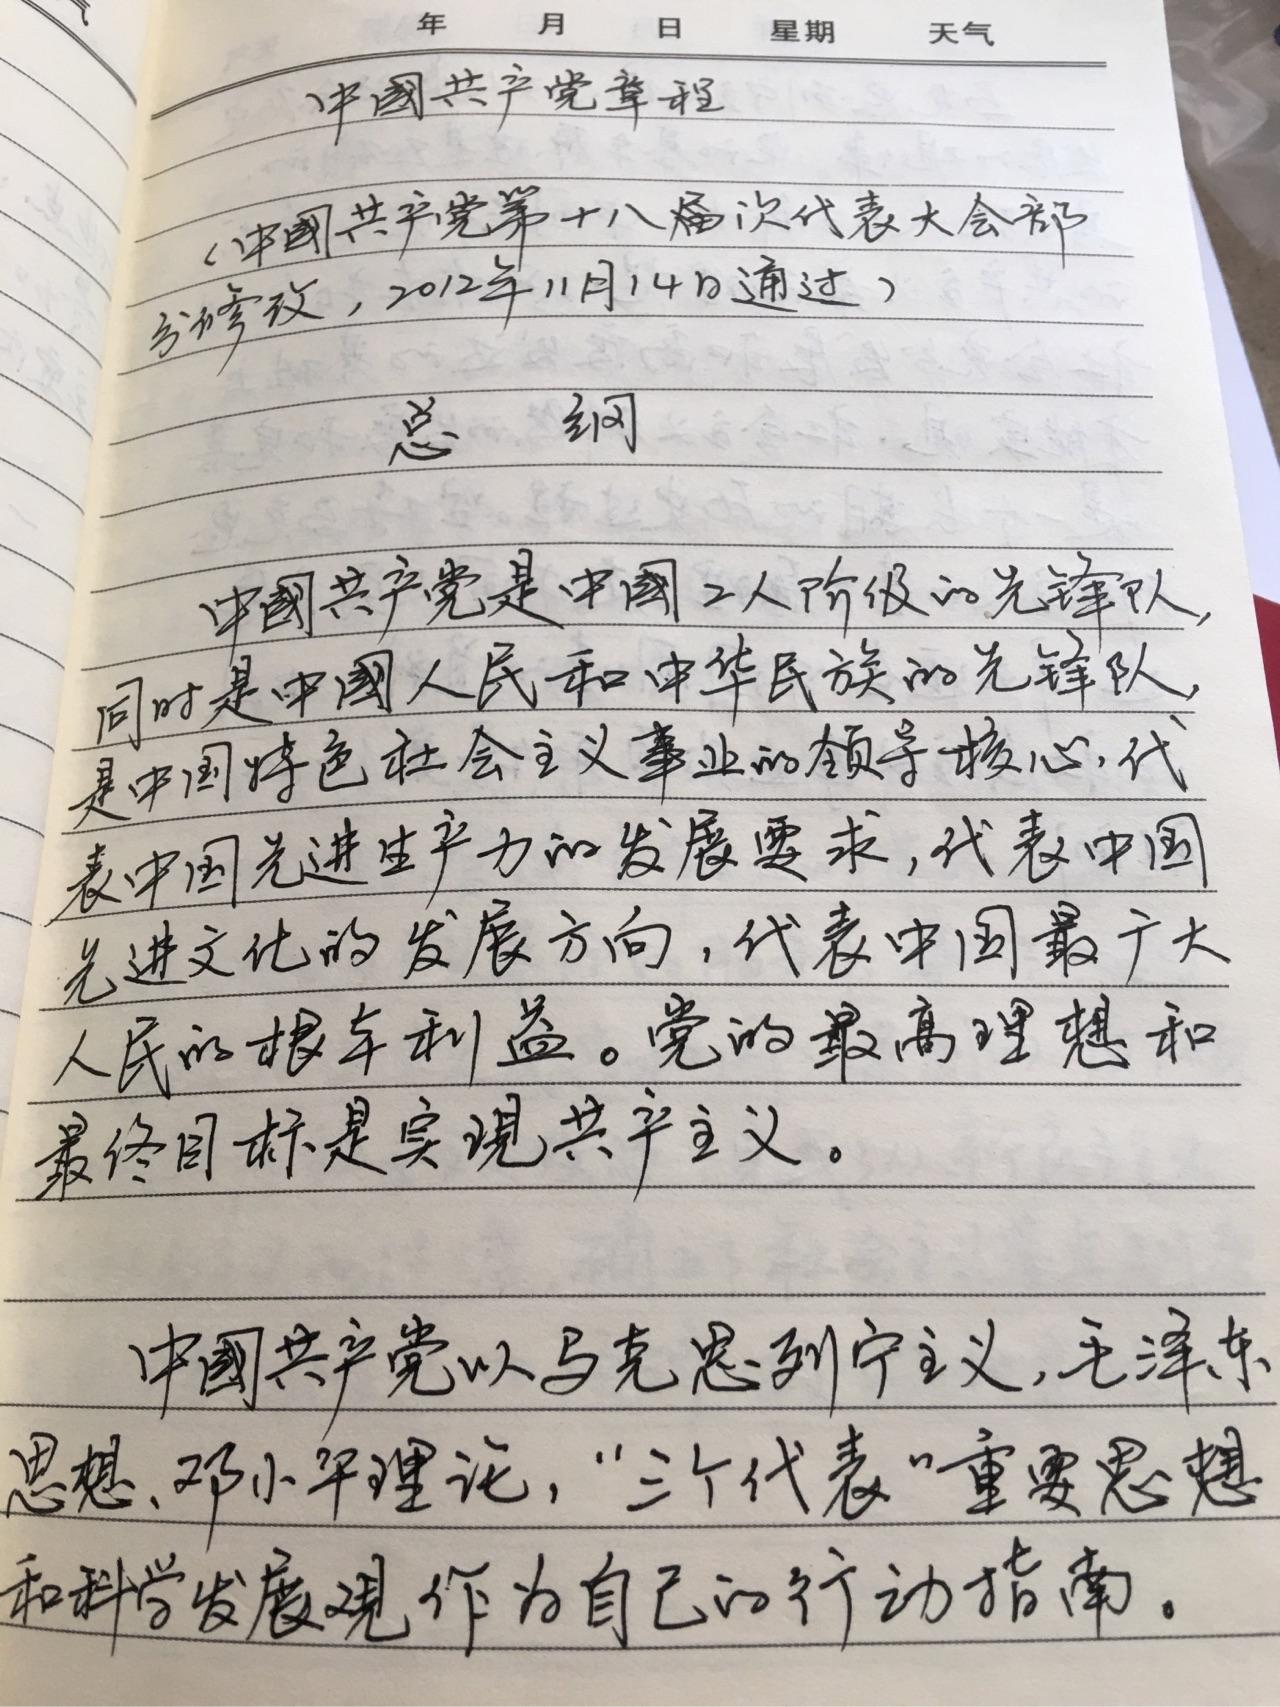 年 月 日 星期 天气
中國共产党章程
（中國共产党第十八届次代表大会部
分修改，2012年11月14日通过）
总 纲
中國共产党是中國工人阶级的先锋队，
同时是中國人民和中华民族的先锋队，
是中国特色社会主义事业的领导核心，代
表中国先进生产力的发展要求，代表中国
先进文化的发展方向，代表中国最广大
人民的根本利益。党的最高理想和
最终目标是实現共产主义。
中國共产党以马克思列宁主义，毛泽东
思想、邓小平理论，“三个代表”重要思想
和科学发展观作为自己的行动指南。